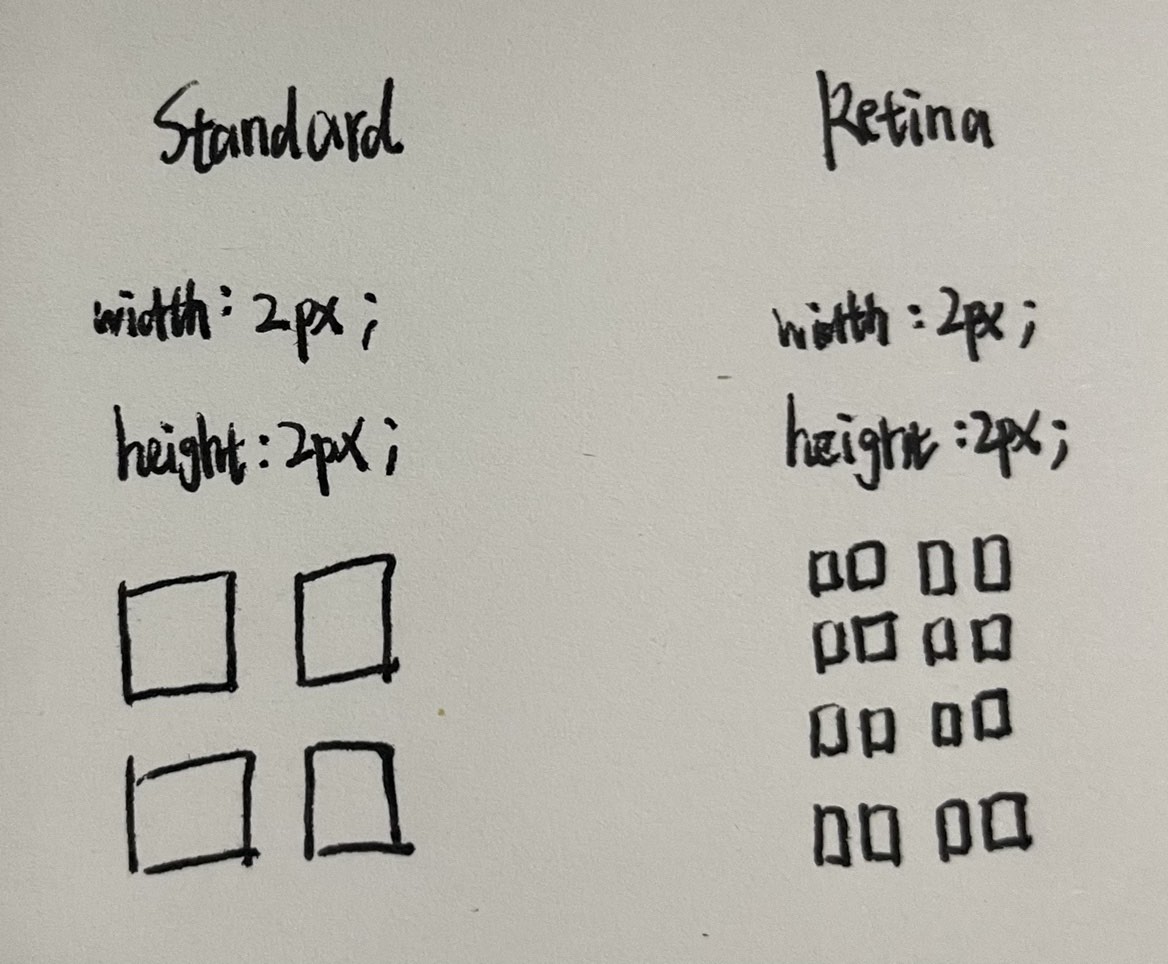 Standard
Retina
width: 2px;
height: 2px;
width: 2px;
height: 2px;